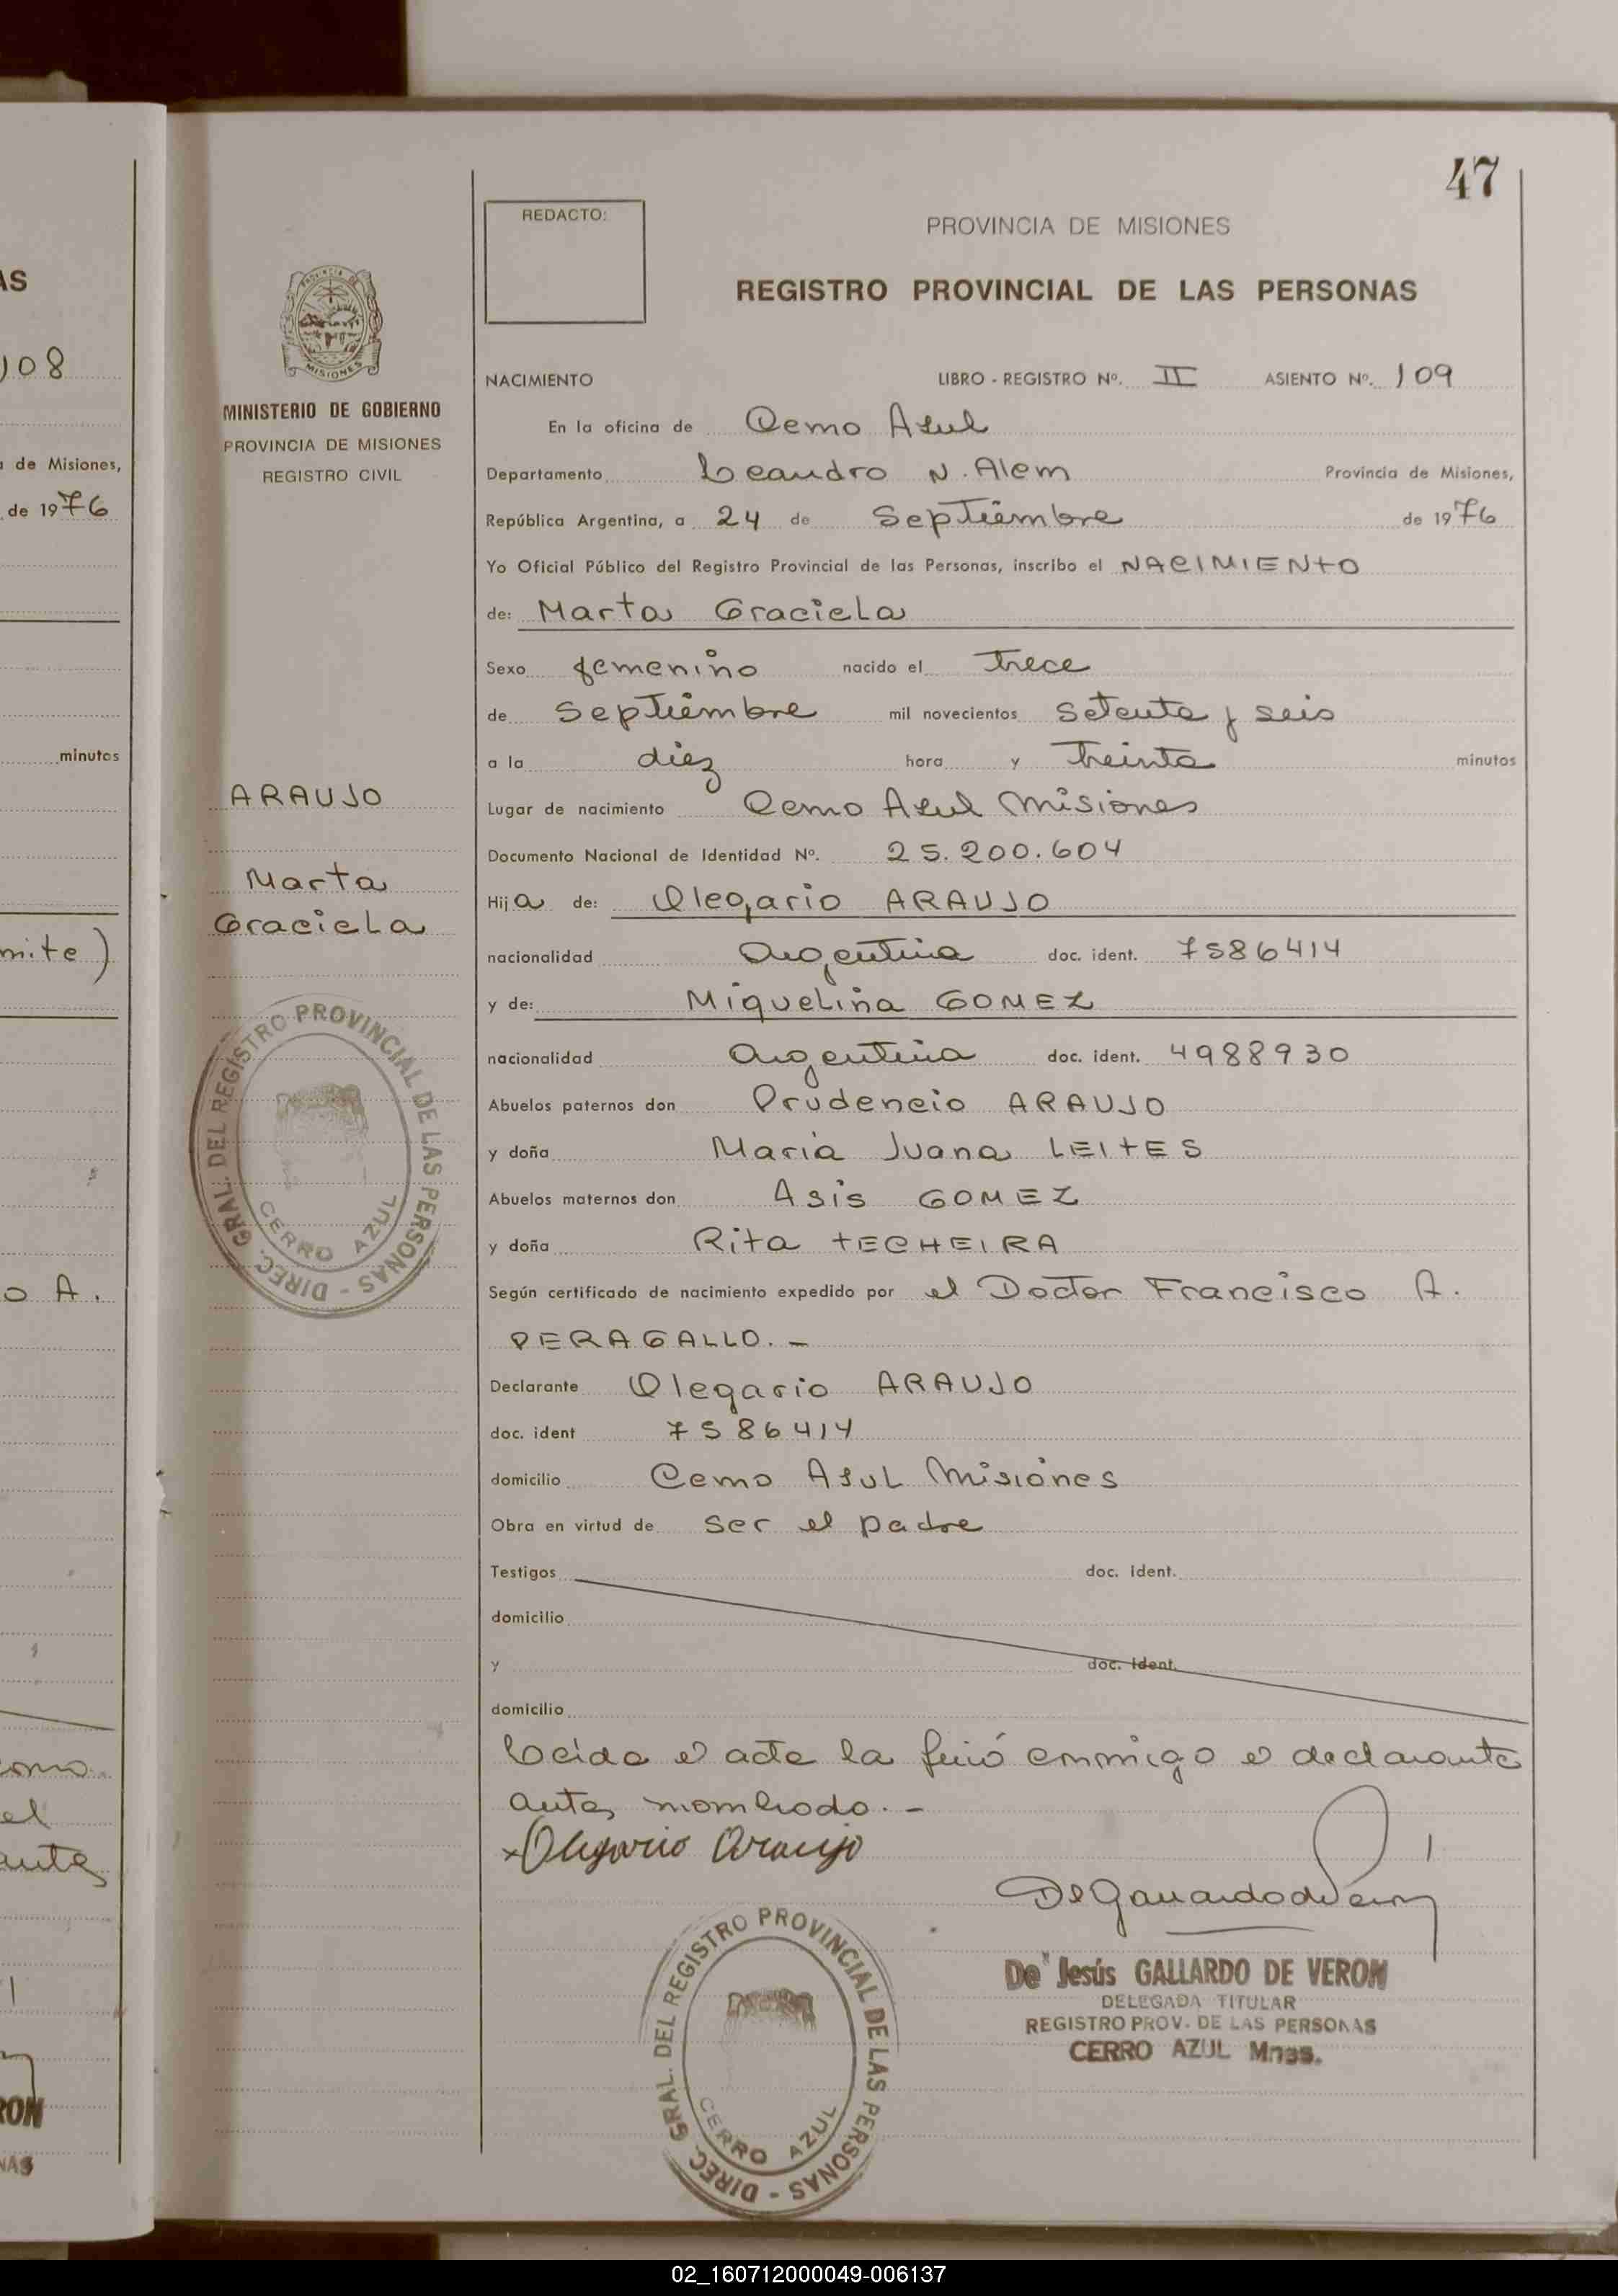 AS
108
a de Misiones,
de 1976
minutos
mite)
o A.
el
ante
RON
NAS
47
REDACTO:
PROVINCIA DE MISIONES
REGISTRO PROVINCIAL DE LAS PERSONAS
PROVINCIA DE
MISIONES
MINISTERIO DE GOBIERNO
PROVINCIA DE MISIONES
REGISTRO CIVIL
NACIMIENTO LIBRO - REGISTRO Nº. II ASIENTO Nº. 109
En la oficina de Cerro Azul
Departamento Leandro N. Alem Provincia de Misiones,
República Argentina, a 24 de Septiembre de 1976
Yo Oficial Público del Registro Provincial de las Personas, inscribo el NACIMIENTO
de: Marta Graciela
Sexo femenino nacido el trece
de Septiembre mil novecientos setenta y seis
a la diez hora y treinta minutos
Lugar de nacimiento Cerro Azul Misiones
Documento Nacional de Identidad Nº. 25.200.604
Hija de: Olegario ARAUJO
nacionalidad Argentina doc. ident. 7586414
y de: Miguelina GOMEZ
nacionalidad Argentina doc. ident. 4988930
Abuelos paternos don Prudencio ARAUJO
y doña Maria Juana LEITES
Abuelos maternos don Asis GOMEZ
y doña Rita TECHEIRA
Según certificado de nacimiento expedido por el Doctor Francisco A.
PERAGALLO. -
Declarante Olegario ARAUJO
doc. ident 7586414
domicilio Cerro Azul Misiones
Obra en virtud de ser el padre
Testigos doc. ident.
domicilio
y doc. ident.
domicilio
Leida el acta la firmó conmigo el declarante
antes nombrado. -
Olegario Araujo
ARAUJO
Marta
Graciela
DIREC. GRAL. DEL REGISTRO PROVINCIAL DE LAS PERSONAS -
CERRO AZUL
DIREC. GRAL. DEL REGISTRO PROVINCIAL DE LAS PERSONAS -
CERRO AZUL
De Jesús GALLARDO DE VERON
DELEGADA TITULAR
REGISTRO PROV. DE LAS PERSONAS
CERRO AZUL Mnes.
02_160712000049-006137